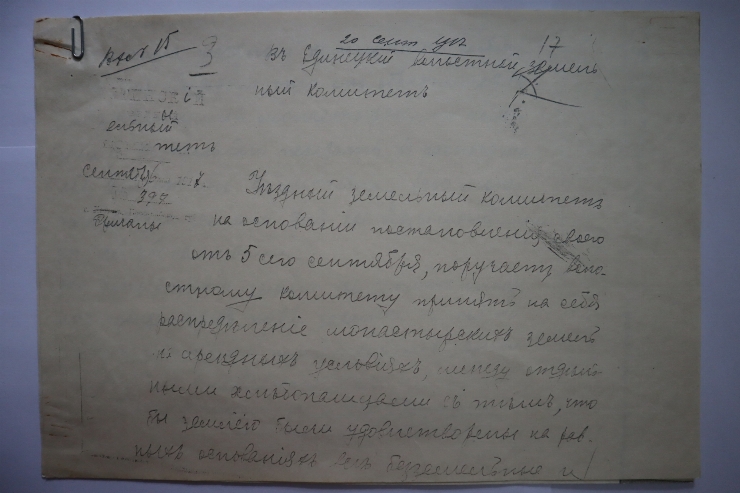 20 сент 917
17
3
въ Единецкій волостной земель
ный комитетъ
ельный
тетъ
Сентября 1917.
399
Уѣздный земельный комитетъ
на основаніи постановленія своего
отъ 5 сего сентября, поручаетъ воло
стному комитету принять на себя
распредѣленіе монастырскихъ земель
на арендныхъ условіяхъ, между отдѣль
ными хлѣбопашцами съ тѣмъ, что
бы землею были удовлетворены на рав-
ныхъ основаніяхъ всѣ безземельные и